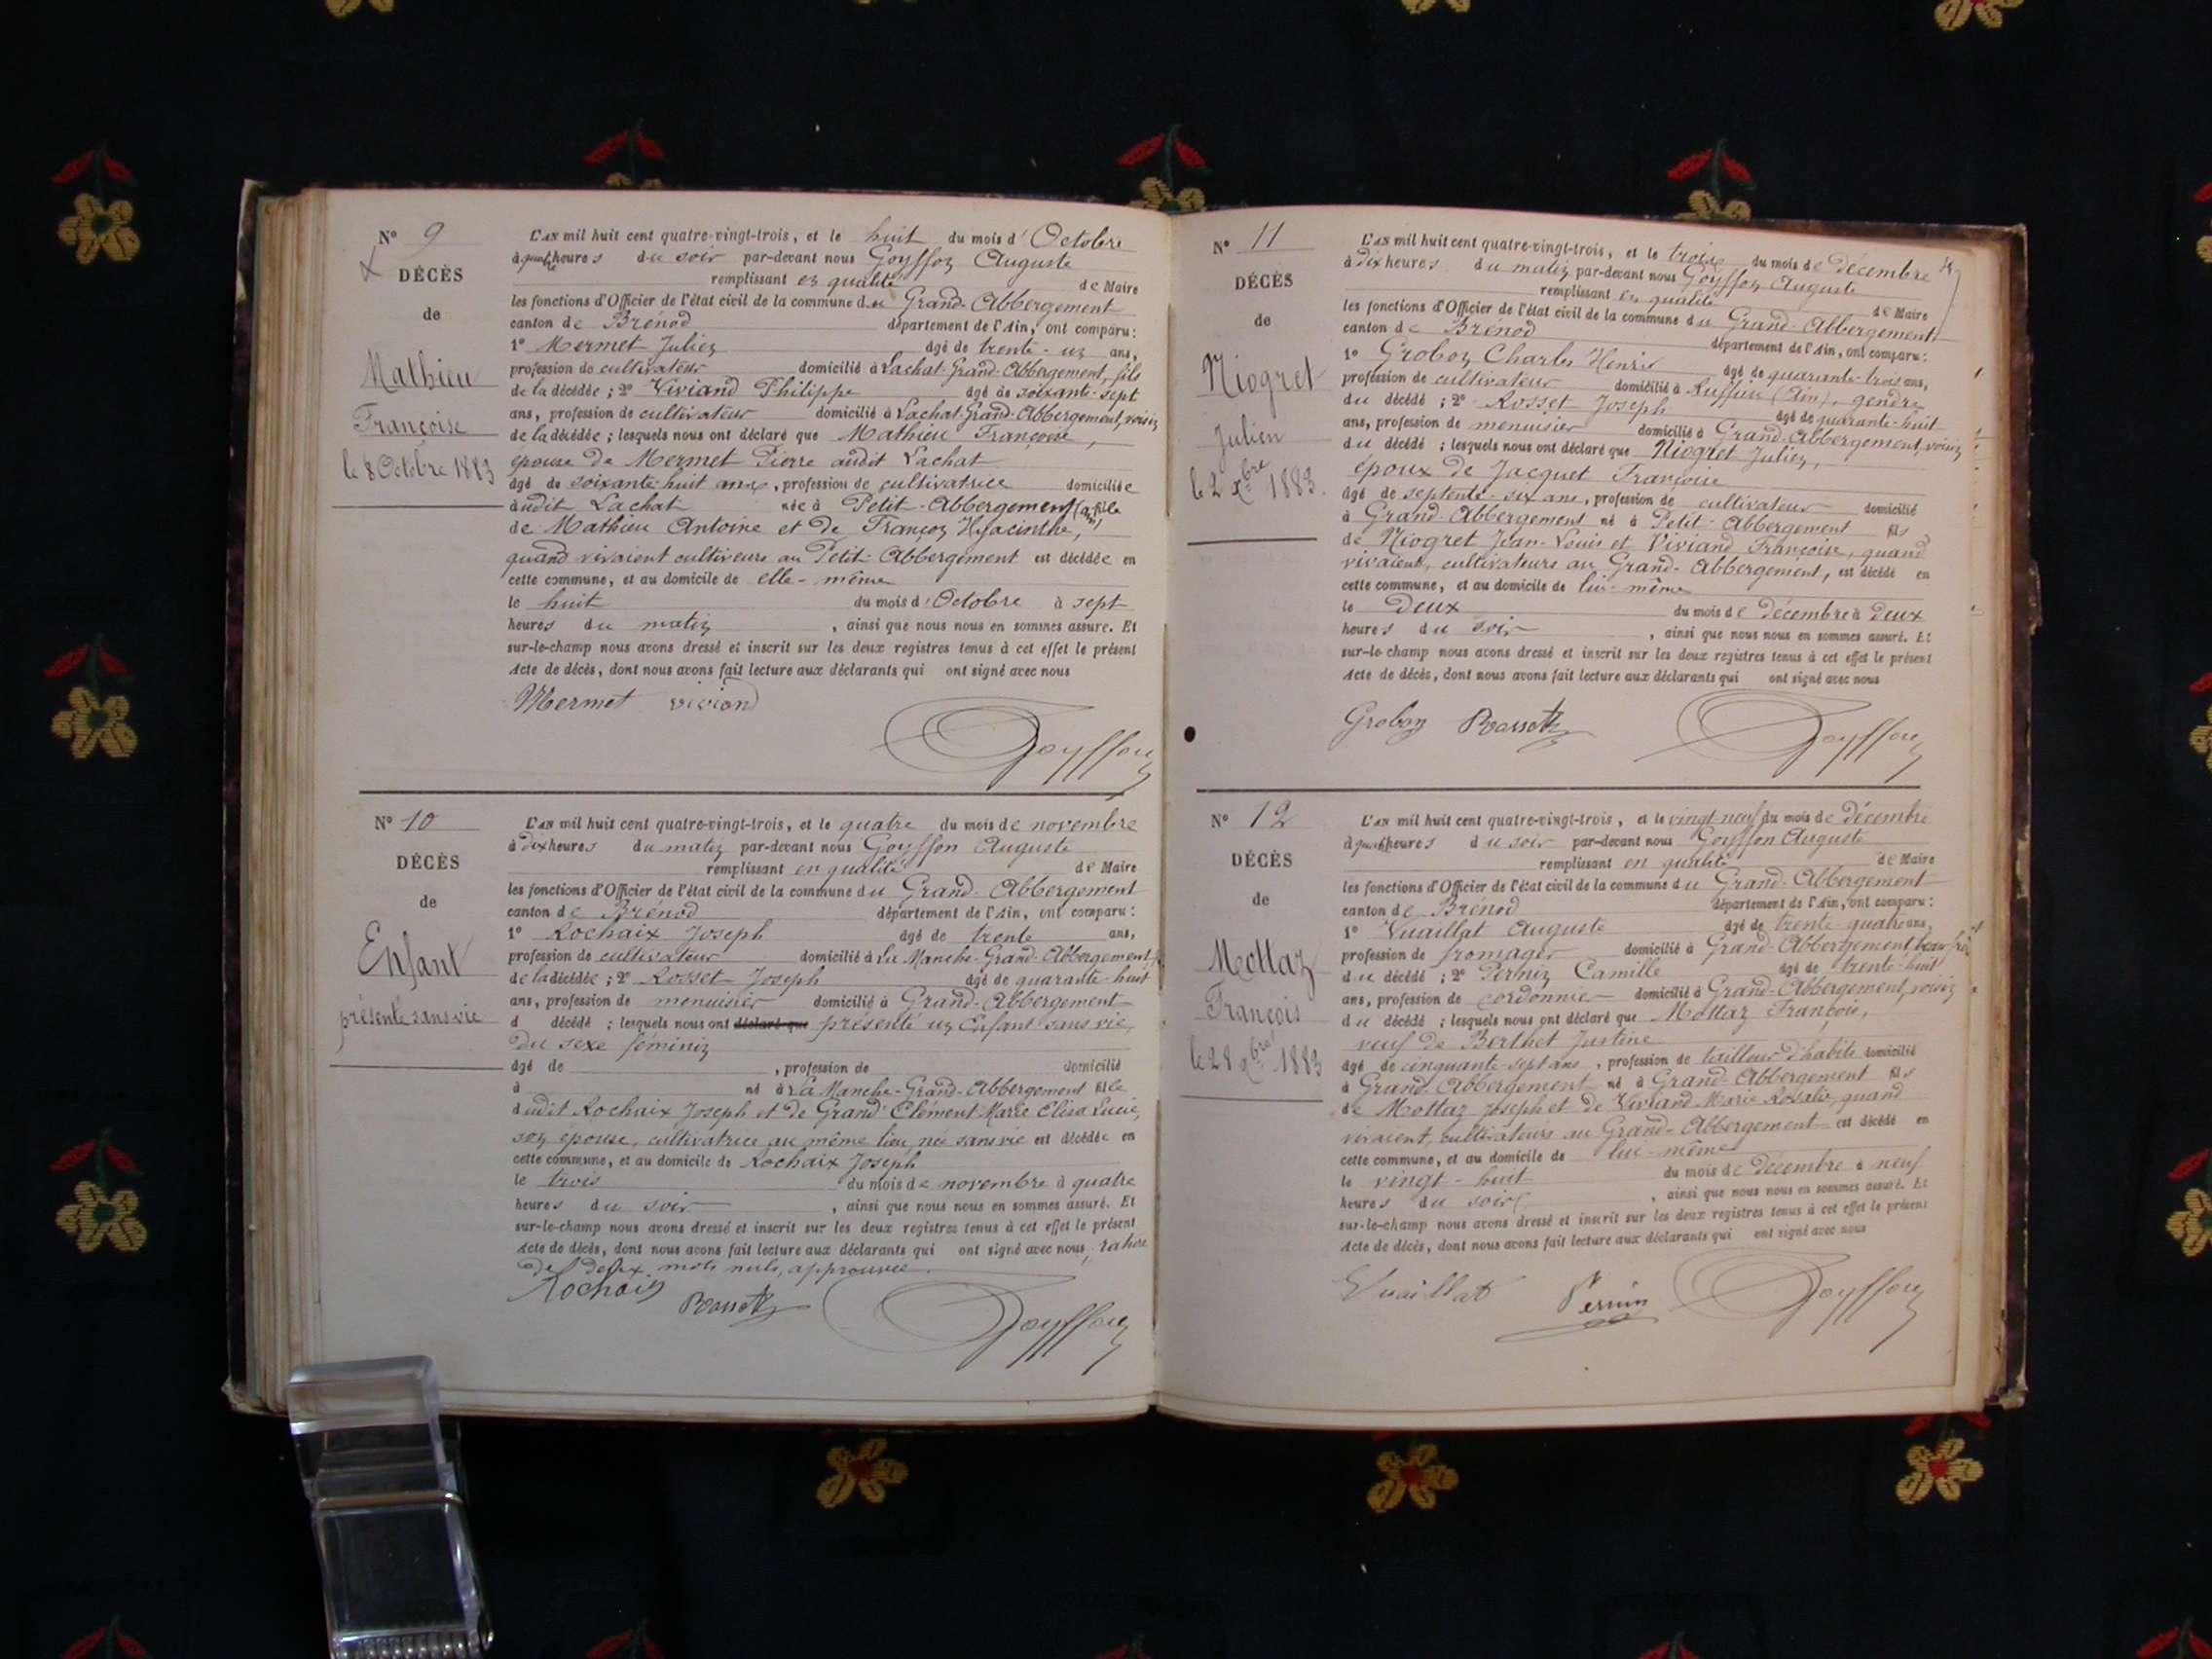 N° 9
DÉCÈS
de
Mathieu
Françoise
le 8 Octobre 1883
L'AN mil huit cent quatre-vingt-trois, et le huit du mois d'Octobre
à quatre heures du soir par-devant nous Goyffon Auguste
remplissant en qualité de Maire
les fonctions d'Officier de l'état civil de la commune du Grand-Abbergement
canton de Brénod département de l'Ain, ont comparu:
1° Mermet Julien âgé de trente-un ans,
profession de cultivateur domicilié à Lachat-Grand-Abbergement, fils
de la décédée ; 2° Viviand Philippe âgé de soixante-sept
ans, profession de cultivateur domicilié à Lachat-Grand-Abbergement, voisin
de la décédée ; lesquels nous ont déclaré que Mathieu Françoise,
épouse de Mermet Pierre audit Lachat
âgé de soixante huit ans, profession de cultivatrice domiciliée
audit Lachat née à Petit-Abbergement (Ain) fille
de Mathieu Antoine et de Françon Hyacinthe,
quand vivaient cultiveurs au Petit-Abbergement est décédée en
cette commune, et au domicile de elle-même
le huit du mois d'Octobre à sept
heures du matin, ainsi que nous nous en sommes assuré. Et
sur-le-champ nous avons dressé et inscrit sur les deux registres tenus à cet effet le présent
Acte de décès, dont nous avons fait lecture aux déclarants qui ont signé avec nous
Mermet viviand
Goyffon
N° 10
DÉCÈS
de
Enfant
présenté sans vie
L'AN mil huit cent quatre-vingt-trois, et le quatre du mois de novembre
à dix heures du matin par-devant nous Goyffon Auguste
remplissant en qualité de Maire
les fonctions d'Officier de l'état civil de la commune du Grand-Abbergement
canton de Brénod département de l'Ain, ont comparu:
1° Rochaix Joseph âgé de trente ans,
profession de cultivateur domicilié à La Manche-Grand-Abbergement
de la décédée ; 2° Rosset Joseph âgé de quarante-huit
ans, profession de menuisier domicilié à Grand-Abbergement
d décédé ; lesquels nous ont déclaré que présenté un Enfant sans vie,
du sexe féminin
âgé de , profession de domicilié
à né à La Manche-Grand-Abbergement fille
dudit Rochaix Joseph et de Grand Clément Marie Elisa Lucie,
son épouse, cultivatrice au même lieu, née sans vie est décédée en
cette commune, et au domicile de Rochaix Joseph
le trois du mois de novembre à quatre
heures du soir, ainsi que nous nous en sommes assuré. Et
sur-le-champ nous avons dressé et inscrit sur les deux registres tenus à cet effet le présent
Acte de décès, dont nous avons fait lecture aux déclarants qui ont signé avec nous, rature
de deux mots nuls, approuvée.
Rochaix
Rosset
Goyffon
N° 11
DÉCÈS
de
Niogret
Julien
le 2 Xbre 1883.
L'AN mil huit cent quatre-vingt-trois, et le trois du mois de décembre
à dix heures du matin par-devant nous Goyffon Auguste
remplissant en qualité de Maire
les fonctions d'Officier de l'état civil de la commune du Grand-Abbergement
canton de Brénod département de l'Ain, ont comparu:
1° Grobon Charles Henri âgé de quarante-trois ans,
profession de cultivateur domicilié à Ruffieu (Ain), gendre
du décédé ; 2° Rosset Joseph âgé de quarante-huit
ans, profession de menuisier domicilié à Grand-Abbergement, voisin
du décédé ; lesquels nous ont déclaré que Niogret Julien,
époux de Jacquet Françoise
âgé de septente-six ans, profession de cultivateur domicilié
à Grand-Abbergement né à Petit-Abbergement fils
de Niogret Jean-Louis et Viviand Françoise, quand
vivaient, cultivateurs au Grand-Abbergement, est décédé en
cette commune, et au domicile de lui-même
le Deux du mois de décembre à deux
heures du soir, ainsi que nous nous en sommes assuré. Et
sur-le-champ nous avons dressé et inscrit sur les deux registres tenus à cet effet le présent
Acte de décès, dont nous avons fait lecture aux déclarants qui ont signé avec nous
Grobon Rosset
Goyffon
N° 12
DÉCÈS
de
Mottaz
François
le 28 Xbre 1883
L'AN mil huit cent quatre-vingt-trois, et le vingt neuf du mois de décembre
à quatre heures du soir par-devant nous Goyffon Auguste
remplissant en qualité de Maire
les fonctions d'Officier de l'état civil de la commune du Grand-Abbergement
canton de Brénod département de l'Ain, ont comparu:
1° Vuaillat Auguste âgé de trente-quatre ans,
profession de fromager domicilié à Grand-Abbergement, beau frère
du décédé ; 2° Pernin Camille âgé de trente-huit
ans, profession de cordonnier domicilié à Grand-Abbergement, voisin
du décédé ; lesquels nous ont déclaré que Mottaz François,
veuf de Berthet Justine
âgé de cinquante-sept ans, profession de tailleur d'habits domicilié
à Grand-Abbergement né à Grand-Abbergement fils
de Mottaz Joseph et de Viviand Marie Rosalie, quand
vivaient, cultivateurs au Grand-Abbergement est décédé en
cette commune, et au domicile de lui-même
le vingt-huit du mois de décembre à neuf
heures du soir, ainsi que nous nous en sommes assuré. Et
sur-le-champ nous avons dressé et inscrit sur les deux registres tenus à cet effet le présent
Acte de décès, dont nous avons fait lecture aux déclarants qui ont signé avec nous
Vuaillat
Pernin
Goyffon